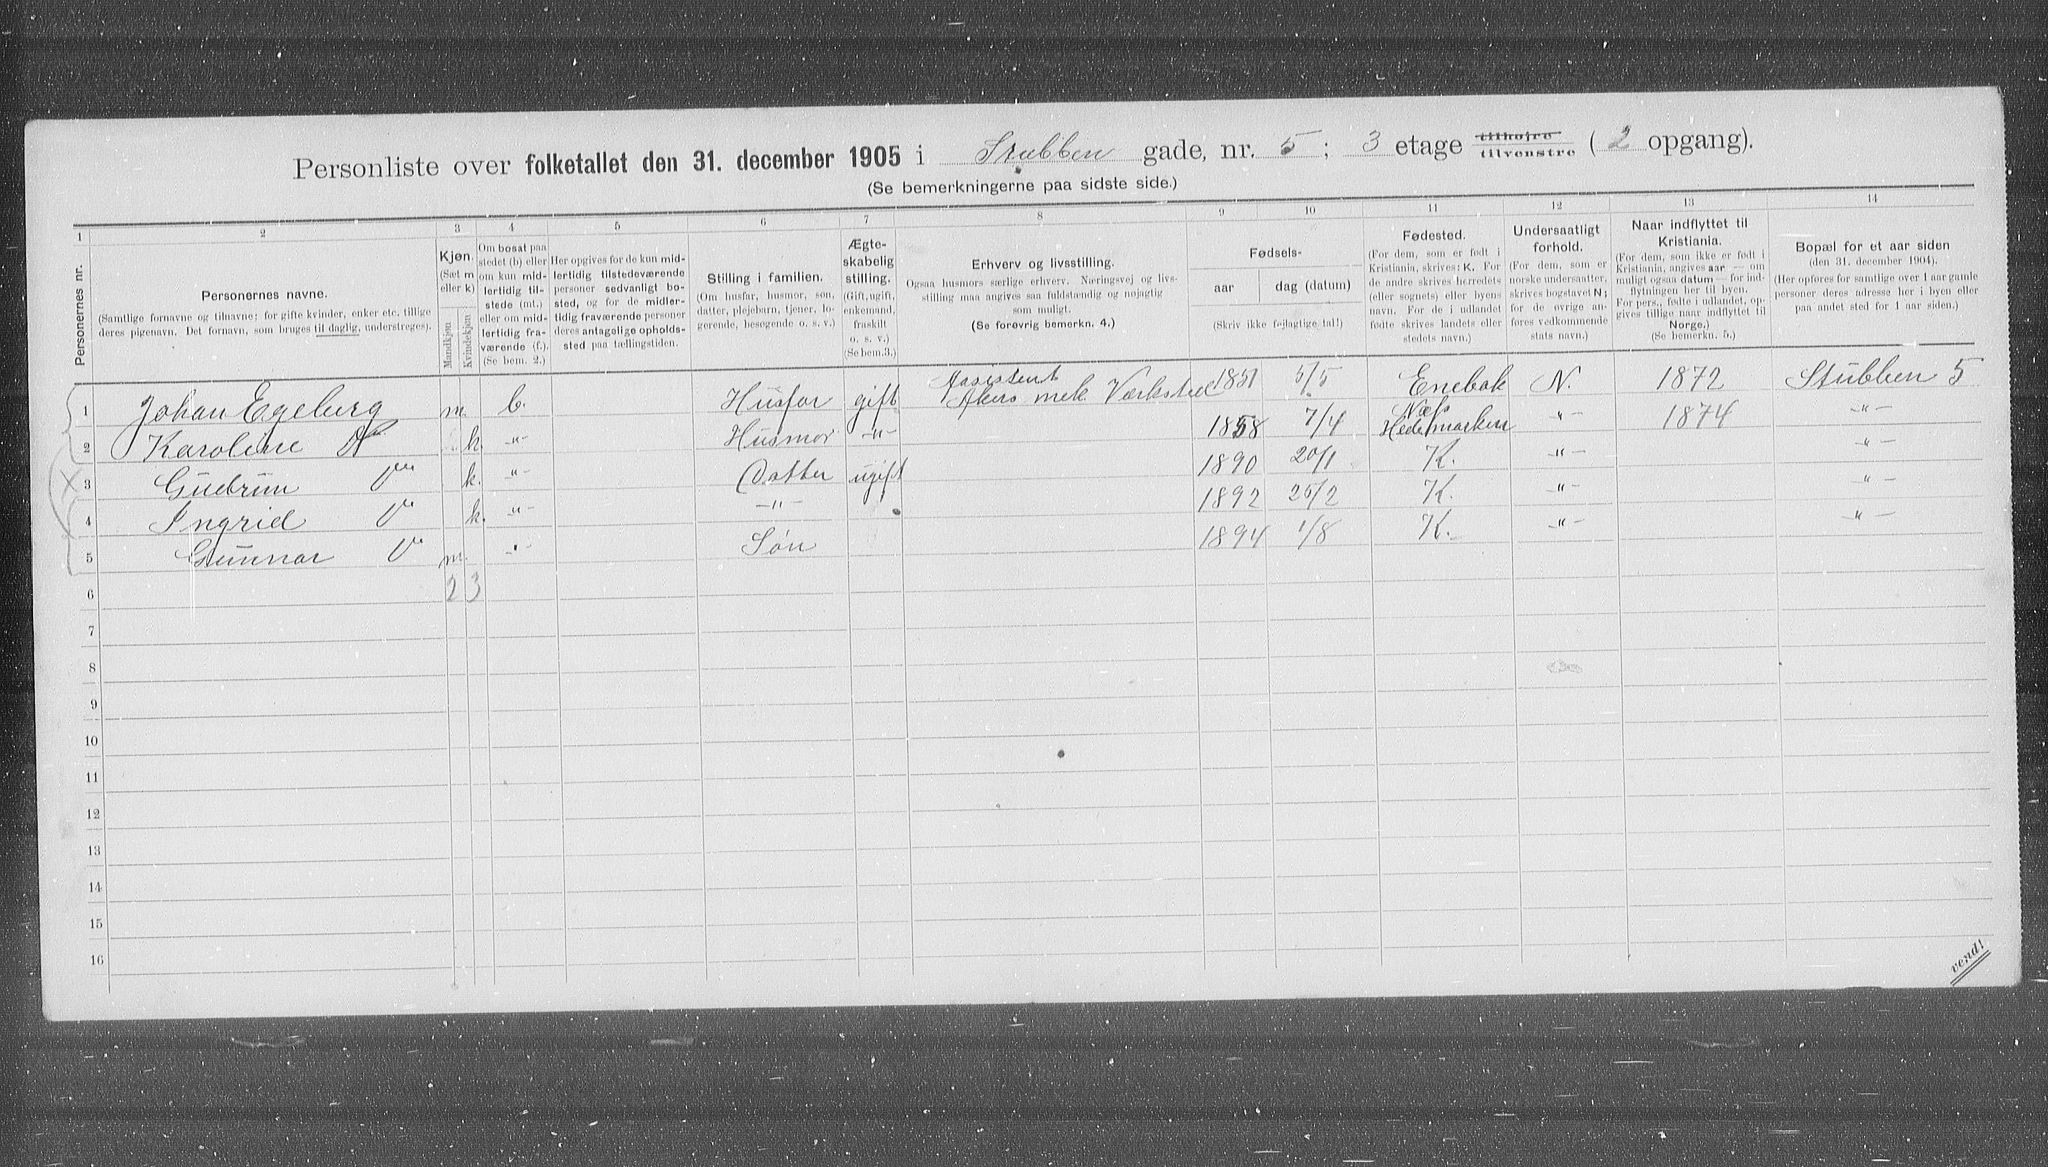 Personliste over folketallet den 31. december 1905 i Stubben gade, nr. 5; 3 etage tilhøire tilvenstre (2 opgang).
(Se bemerkningerne paa sidste side.)
1 2 3 4 5 6 7 8 9 10 11 12 13 14
Personernes nr.
Personernes navne.
(Samtlige fornavne og tilnavne; for gifte kvinder, enker etc. tillige
deres pigenavn. Det fornavn, som bruges til daglig, understreges).
Kjøn.
(Sæt m
eller k)
Mandkjøn
Kvindekjøn
Om bosat paa
stedet (b) eller
om kun mid-
lertidig til-
stede (mt.)
eller om mid-
lertidig fra-
værende (f.).
(Se bem. 2.)
Her opgives for de kun mid-
lertidig tilstedeværende
personer sedvanlig bo-
sted, og for de midler-
tidig fraværende personer
deres antagelige opholds-
sted paa tællingstiden.
Stilling i familien.
(Om husfar, husmor, søn,
datter, plejebarn, tjener, lo-
gerende, besøgende o. s. v.)
Ægte-
skabelig
stilling.
(Gift, ugift,
enkemand,
fraskilt
o. s. v.)
(Se bem. 3.)
Erhverv og livsstilling.
Ogsaa husmors særlige erhverv. Næringsvej og livs-
stilling maa angives saa fuldstændig og nøjagtig
som muligt.
(Se forøvrig bemerkn. 4.)
Fødsels-
aar dag (datum)
(Skriv ikke fejlagtige tal!)
Fødested.
(For dem, som er født i
Kristiania, skrives: K. For
de andre skrives herredets
(eller sognets) eller byens
navn. For de i udlandet
fødte skrives landets eller
stedets navn.)
Undersaatligt
forhold.
(For dem, som er
norske undersaatter,
skrives bogstavet N;
for de øvrige an-
føres vedkommende
stats navn.)
Naar indflyttet til
Kristiania.
(For dem, som ikke er født i
Kristiania, angives aar — om
muligt ogsaa datum — for ind-
flytningen her til byen.
For pers., fødte i udlandet, op-
gives tillige naar indflyttet til
Norge.)
(Se bemerkn. 5.)
Bopæl for et aar siden
(den 31. december 1904).
(Her opføres for samtlige over 1 aar gamle
personer deres adresse her i byen eller
paa andet sted for 1 aar siden.)
1 Johan Egeberg m. b. Husfar gift Assistent Akers mek Værksted 1851 5/5 Enebak N. 1872 Stubben 5
2 Karoline k. -"- Husmor -"- 1858 7/4 Næs Hedemarken -"- 1874 -"-
3 Gudrun k. -"- Datter ugift 1890 20/1 K. -"- -"-
4 Ingrid k. -"- -"- 1892 25/2 K. -"- -"-
5 Gunnar m. -"- Søn 1894 1/8 K. -"- -"-
6 2 3
7
8
9
10
11
12
13
14
15
16
vend!